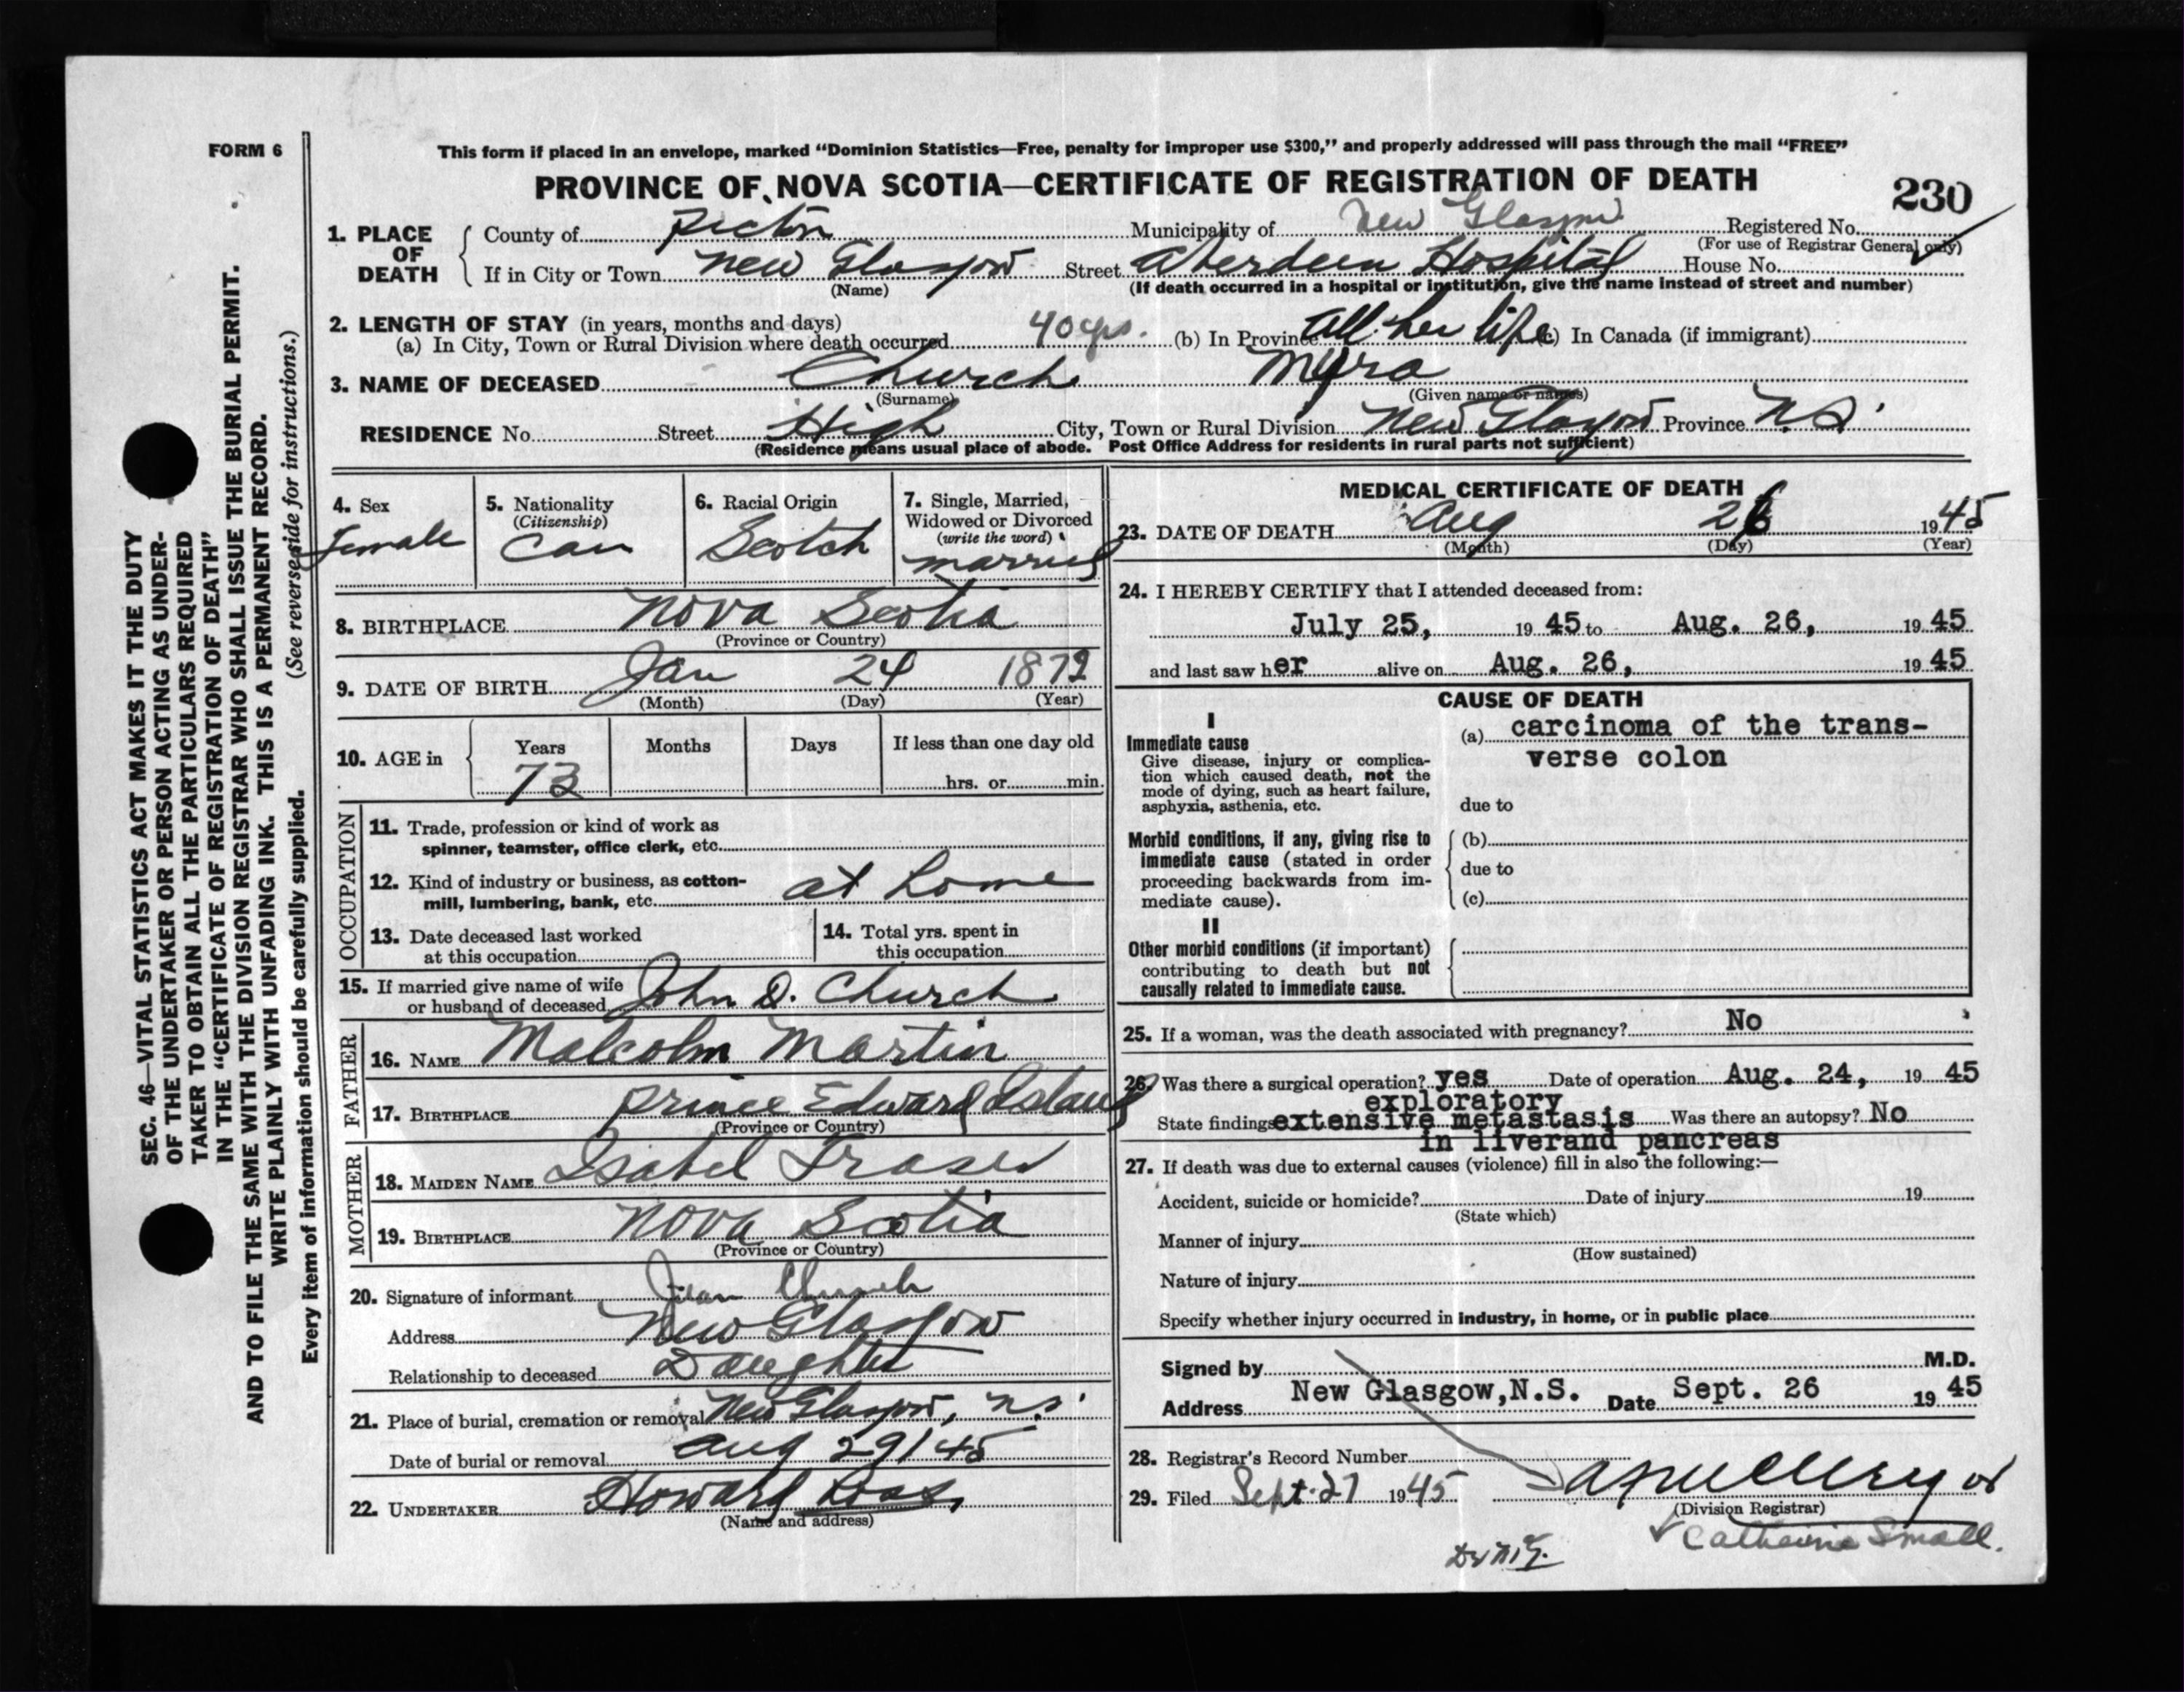 FORM 6
This form if placed in an envelope, marked “Dominion Statistics—Free, penalty for improper use $300,” and properly addressed will pass through the mail “FREE”
PROVINCE OF NOVA SCOTIA—CERTIFICATE OF REGISTRATION OF DEATH
230
1. PLACE OF DEATH
County of Pictou Municipality of New Glasgow Registered No.
(For use of Registrar General only)
If in City or Town New Glasgow Street Aberdeen Hospital House No.
(Name) (If death occurred in a hospital or institution, give the name instead of street and number)
2. LENGTH OF STAY (in years, months and days)
(a) In City, Town or Rural Division where death occurred 40 yrs. (b) In Province All her life (c) In Canada (if immigrant)
3. NAME OF DECEASED Church Myra
(Surname) (Given name or names)
RESIDENCE No. Street High City, Town or Rural Division New Glasgow Province N.S.
(Residence means usual place of abode. Post Office Address for residents in rural parts not sufficient)
4. Sex
Female
5. Nationality
(Citizenship)
Can
6. Racial Origin
Scotch
7. Single, Married,
Widowed or Divorced
(write the word)
married
8. BIRTHPLACE Nova Scotia
(Province or Country)
9. DATE OF BIRTH Jan 24 1872
(Month) (Day) (Year)
10. AGE in
Years Months Days If less than one day old
73 hrs. or min.
OCCUPATION
11. Trade, profession or kind of work as
spinner, teamster, office clerk, etc.
12. Kind of industry or business, as cotton-
mill, lumbering, bank, etc. at home
13. Date deceased last worked
at this occupation
14. Total yrs. spent in
this occupation
15. If married give name of wife
or husband of deceased John D. Church
FATHER
16. NAME Malcolm Martin
17. BIRTHPLACE Prince Edward Island
(Province or Country)
MOTHER
18. MAIDEN NAME Isabel Fraser
19. BIRTHPLACE Nova Scotia
(Province or Country)
20. Signature of informant Jean Church
Address New Glasgow
Relationship to deceased Daughter
21. Place of burial, cremation or removal New Glasgow, N.S.
Date of burial or removal Aug 29/45
22. UNDERTAKER Howard Ross,
(Name and address)
MEDICAL CERTIFICATE OF DEATH
23. DATE OF DEATH Aug 26 1945
(Month) (Day) (Year)
24. I HEREBY CERTIFY that I attended deceased from:
July 25, 19 45 to Aug. 26, 19 45
and last saw her alive on Aug. 26, 19 45
CAUSE OF DEATH
I
Immediate cause
Give disease, injury or complica-
tion which caused death, not the
mode of dying, such as heart failure,
asphyxia, asthenia, etc.
(a) carcinoma of the trans-
verse colon
due to
Morbid conditions, if any, giving rise to
immediate cause (stated in order
proceeding backwards from im-
mediate cause).
(b)
due to
(c)
II
Other morbid conditions (if important)
contributing to death but not
causally related to immediate cause.
25. If a woman, was the death associated with pregnancy? No
26. Was there a surgical operation? yes Date of operation Aug. 24, 19 45
exploratory
State findings extensive metastasis Was there an autopsy? No
in liverand pancreas
27. If death was due to external causes (violence) fill in also the following:—
Accident, suicide or homicide? Date of injury 19
(State which)
Manner of injury
(How sustained)
Nature of injury
Specify whether injury occurred in industry, in home, or in public place
Signed by M.D.
Address New Glasgow,N.S. Date Sept. 26 19 45
28. Registrar's Record Number
29. Filed Sept. 27 1945
(Division Registrar)
Catherine Small.
SEC. 46—VITAL STATISTICS ACT MAKES IT THE DUTY
OF THE UNDERTAKER OR PERSON ACTING AS UNDER-
TAKER TO OBTAIN ALL THE PARTICULARS REQUIRED
IN THE “CERTIFICATE OF REGISTRATION OF DEATH”
AND TO FILE THE SAME WITH THE DIVISION REGISTRAR WHO SHALL ISSUE THE BURIAL PERMIT.
WRITE PLAINLY WITH UNFADING INK. THIS IS A PERMANENT RECORD.
Every item of information should be carefully supplied. (See reverse side for instructions.)